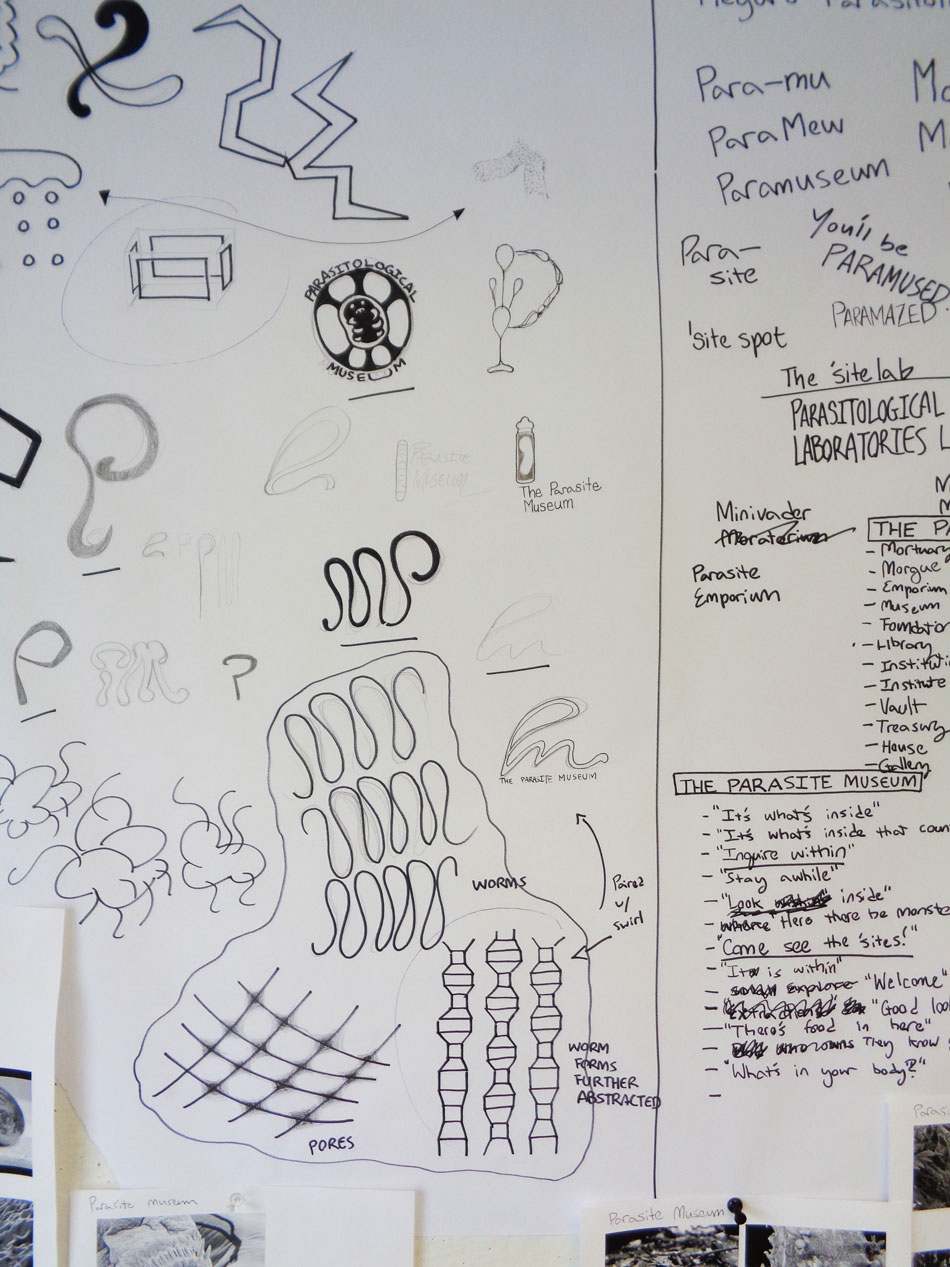 PARASITOLOGICAL
MUSEUM
PARASITE
MUSEUM
The Parasite
Museum
THE PARASITE MUSEUM
WORMS
Paired
w/
swirl
WORM
FORMS
FURTHER
ABSTRACTED
PORES
Parasite museum
Para-mu
ParaMew
Paramuseum
Para-
site
You'll be
PARAMUSED
PARAMAZED
'site spot
The 'site lab
PARASITOLOGICAL
LABORATORIES L
Minivader
Moratorium
Parasite
Emporium
THE PA
- Mortuary
- Morgue
- Emporium
- Museum
- Foundation
- Library
- Institute
- Vault
- Treasury
- House
- Gallery
THE PARASITE MUSEUM
- "It's what's inside"
- "It's what's inside that coun
- "Inquire within"
- "Stay awhile"
- "Look inside"
- Here there be monste
- "Come see the 'sites!"
- "It is within"
- explore "Welcome"
- "Good loo
- "There's food in here"
- They know
- "What's in your body?"
-
Parasite Museum